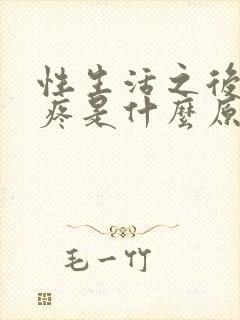 性生活之後
疼是什麼原
毛一竹